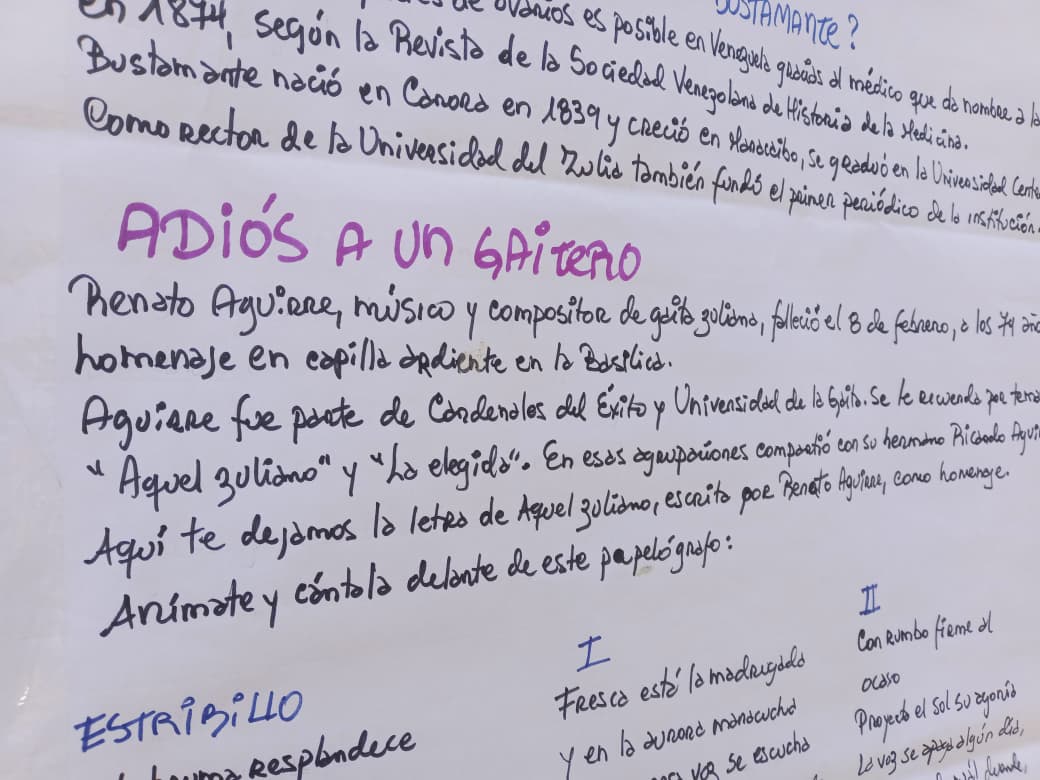 BUSTAMANTE?
de ovarios es posible en Venezuela gracias al médico que da nombre a la
en 1874, según la Revista de la Sociedad Venezolana de Historia de la Medicina.
Bustamante nació en Carora en 1839 y creció en Maracaibo, se graduó en la Universidad Cent
Como rector de la Universidad del Zulia también fundó el primer periódico de la institución.
ADIÓS A UN GAITERO
Renato Aguirre, músico y compositor de gaita zuliana, falleció el 8 de febrero, a los 74 año
homenaje en capilla ardiente en la Basílica.
Aguirre fue parte de Cardenales del Éxito y Universidad de la Gaita. Se le recuerda por tema
"Aquel zuliano" y "La elegida". En esas agrupaciones compartió con su hermano Ricardo Aguir
Aquí te dejamos la letra de Aquel zuliano, escrita por Renato Aguirre, como homenge.
Anímate y cántala delante de este papelógrafo:
ESTRIBILLO
resplandece
I
Fresca está la madrugada
y en la aurora maracucha
voz se escucha
II
Con rumbo firme al
ocaso
Proyecta el sol su agonía
La voz se apaga algún día,